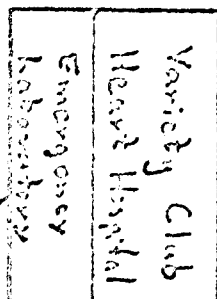 Variety Club
Heart Hospital
Emergency
Laboratory